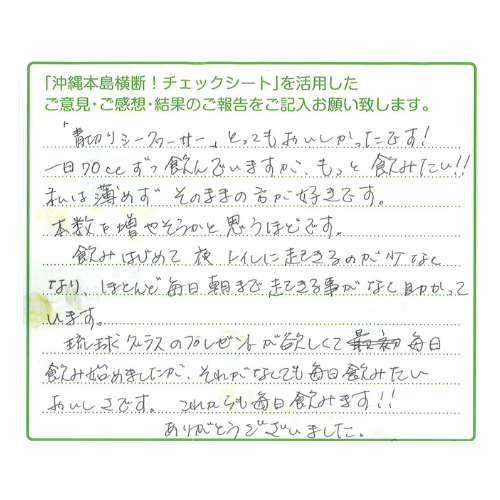 「沖縄本島横断！チェックシート」を活用した
ご意見・ご感想・結果のご報告をご記入お願い致します。
「青切りシークヮーサー」とってもおいしかったです！
一日70ccずつ飲んでいますが、もっと飲みたい!!
私は薄めず そのままの方が好きです。
本数を増やそうかと思うほどです。
飲みはじめて 夜 トイレに起きるのが少なく
なり、ほとんど毎日朝まで起きる事がなく助かって
います。
琉球グラスのプレゼントが欲しくて 毎日
飲み始めましたが、それがなくても毎日飲みたい
おいしさです。 これからも毎日飲みます!!
ありがとうございました。